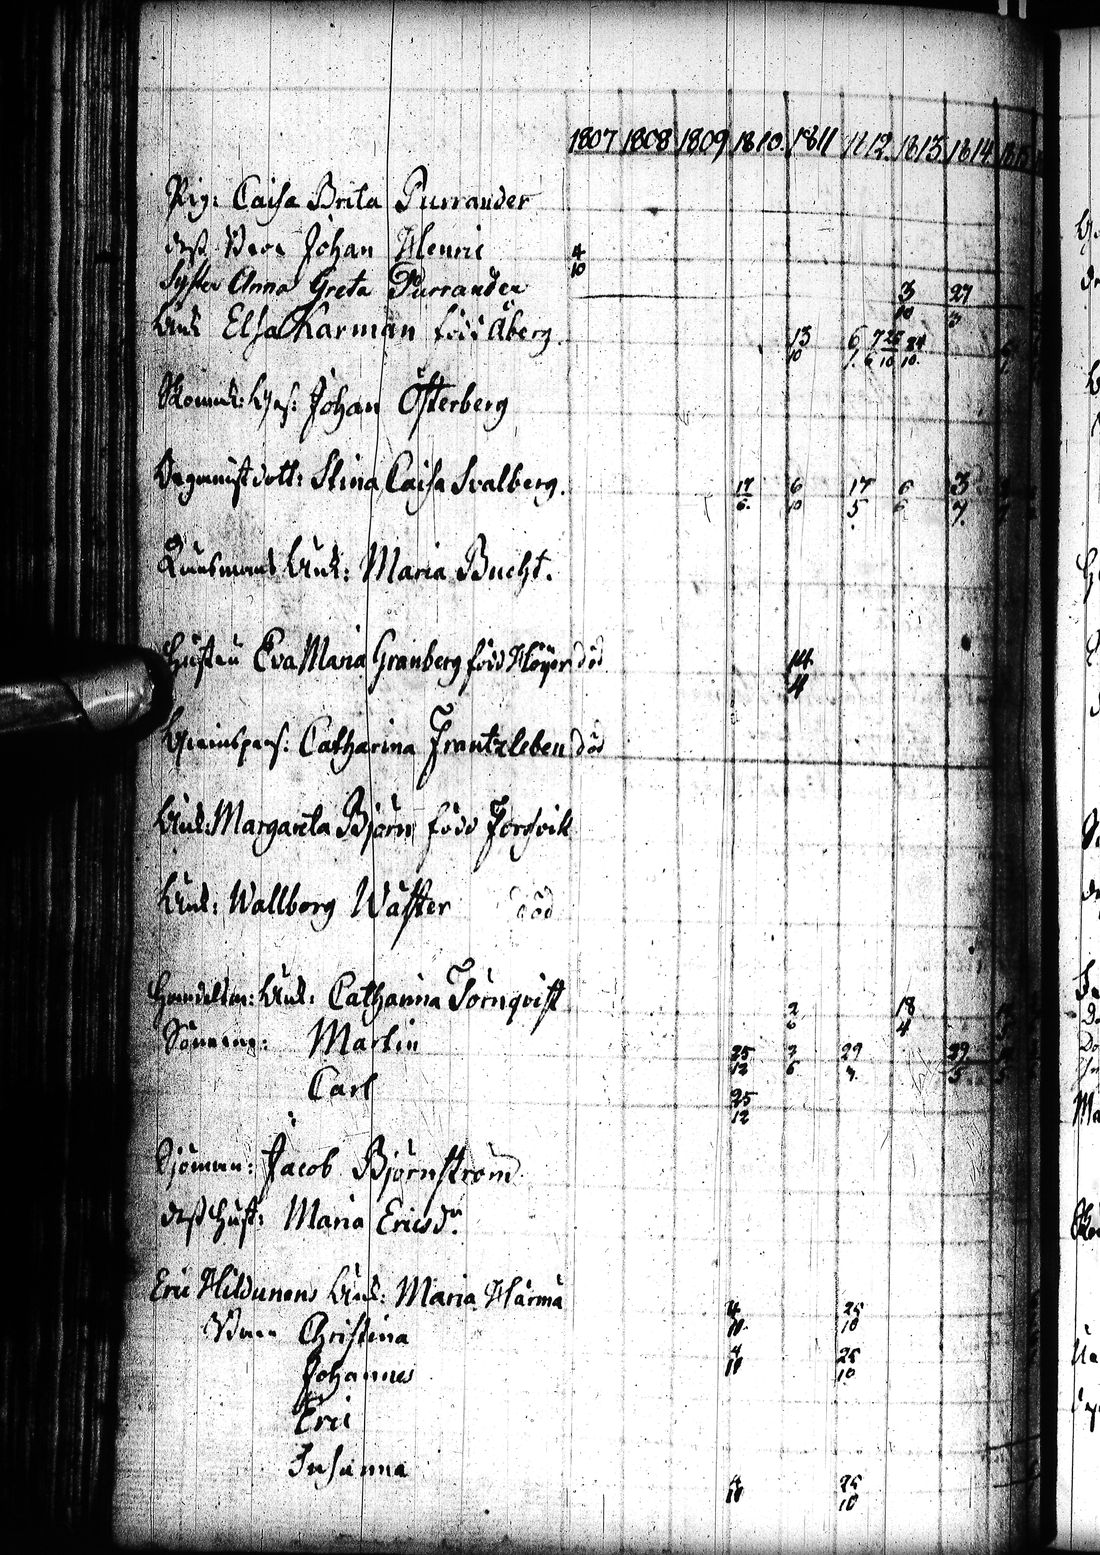 1807 1808 1809 1810. 1811 1812. 1813. 1814 1815
Pig: Caisa Brita Purrander
dess Barn Johan Henric 4/10
Syster Anna Greta Purrander 3/10 27/3
Enk Elsa Karman född Åberg 13/10 6/1. 7/6 25/10 24/10.
Johan Österberg
Stina Caisa Svalberg. 17/6. 6/10 17/5 6/6 3/7.
Enk: Maria Bucht.
Hustru Eva Maria Granberg född Höyer död 14/4
Catharina Frantzleben död
Enk: Margareta Björn född Forssvik
Enk: Wallborg Wäster död
Handelsm: Enk: Catharina Törnqvist 2/6 18/4
Sönerne: Martin 25/12 2/6 29/4. 29/5
Carl 25/12
Sjöman: Jacob Björnström
dess Hust: Maria Ericsdr.
Eric Hildunens Enk: Maria Härmä 4/10. 25/10
Barn Christina 4/10 25/10
Johannes
Eric
Susanna 4/10 25/10